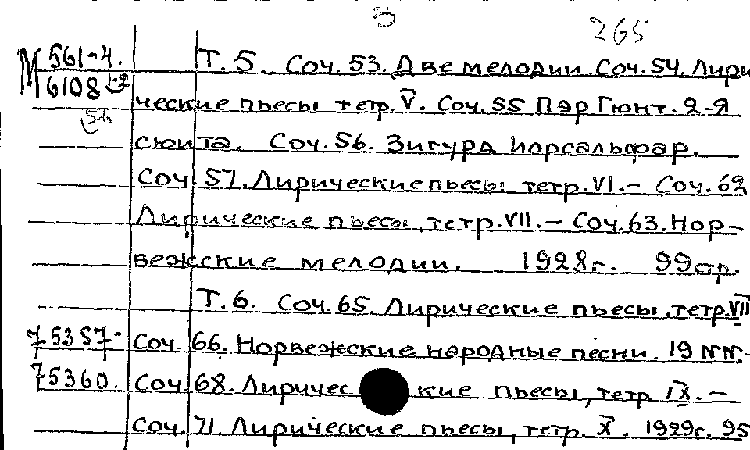 265
М 561-4. Т. 5. Соч. 53. Две мелодии. Соч. 54. Лири
6108 ческие пьесы тетр. V. Соч. 55 Пэр Гюнт. 2-я
сюита. Соч. 56. Зигурд Иорсальфар.
Соч. 57. Лирические пьесы тетр. VI. – Соч. 62
Лирические пьесы, тетр. VII. – Соч. 63. Нор-
вежские мелодии. 1928г. 99стр.
Т. 6. Соч. 65. Лирические пьесы, тетр. VIII
75357- Соч. 66. Норвежские народные песни. 19 №№.-
75360. Соч. 68. Лиричес кие пьесы, тетр. IX. –
Соч. 71. Лирические пьесы, тетр. X. 1929г. 95